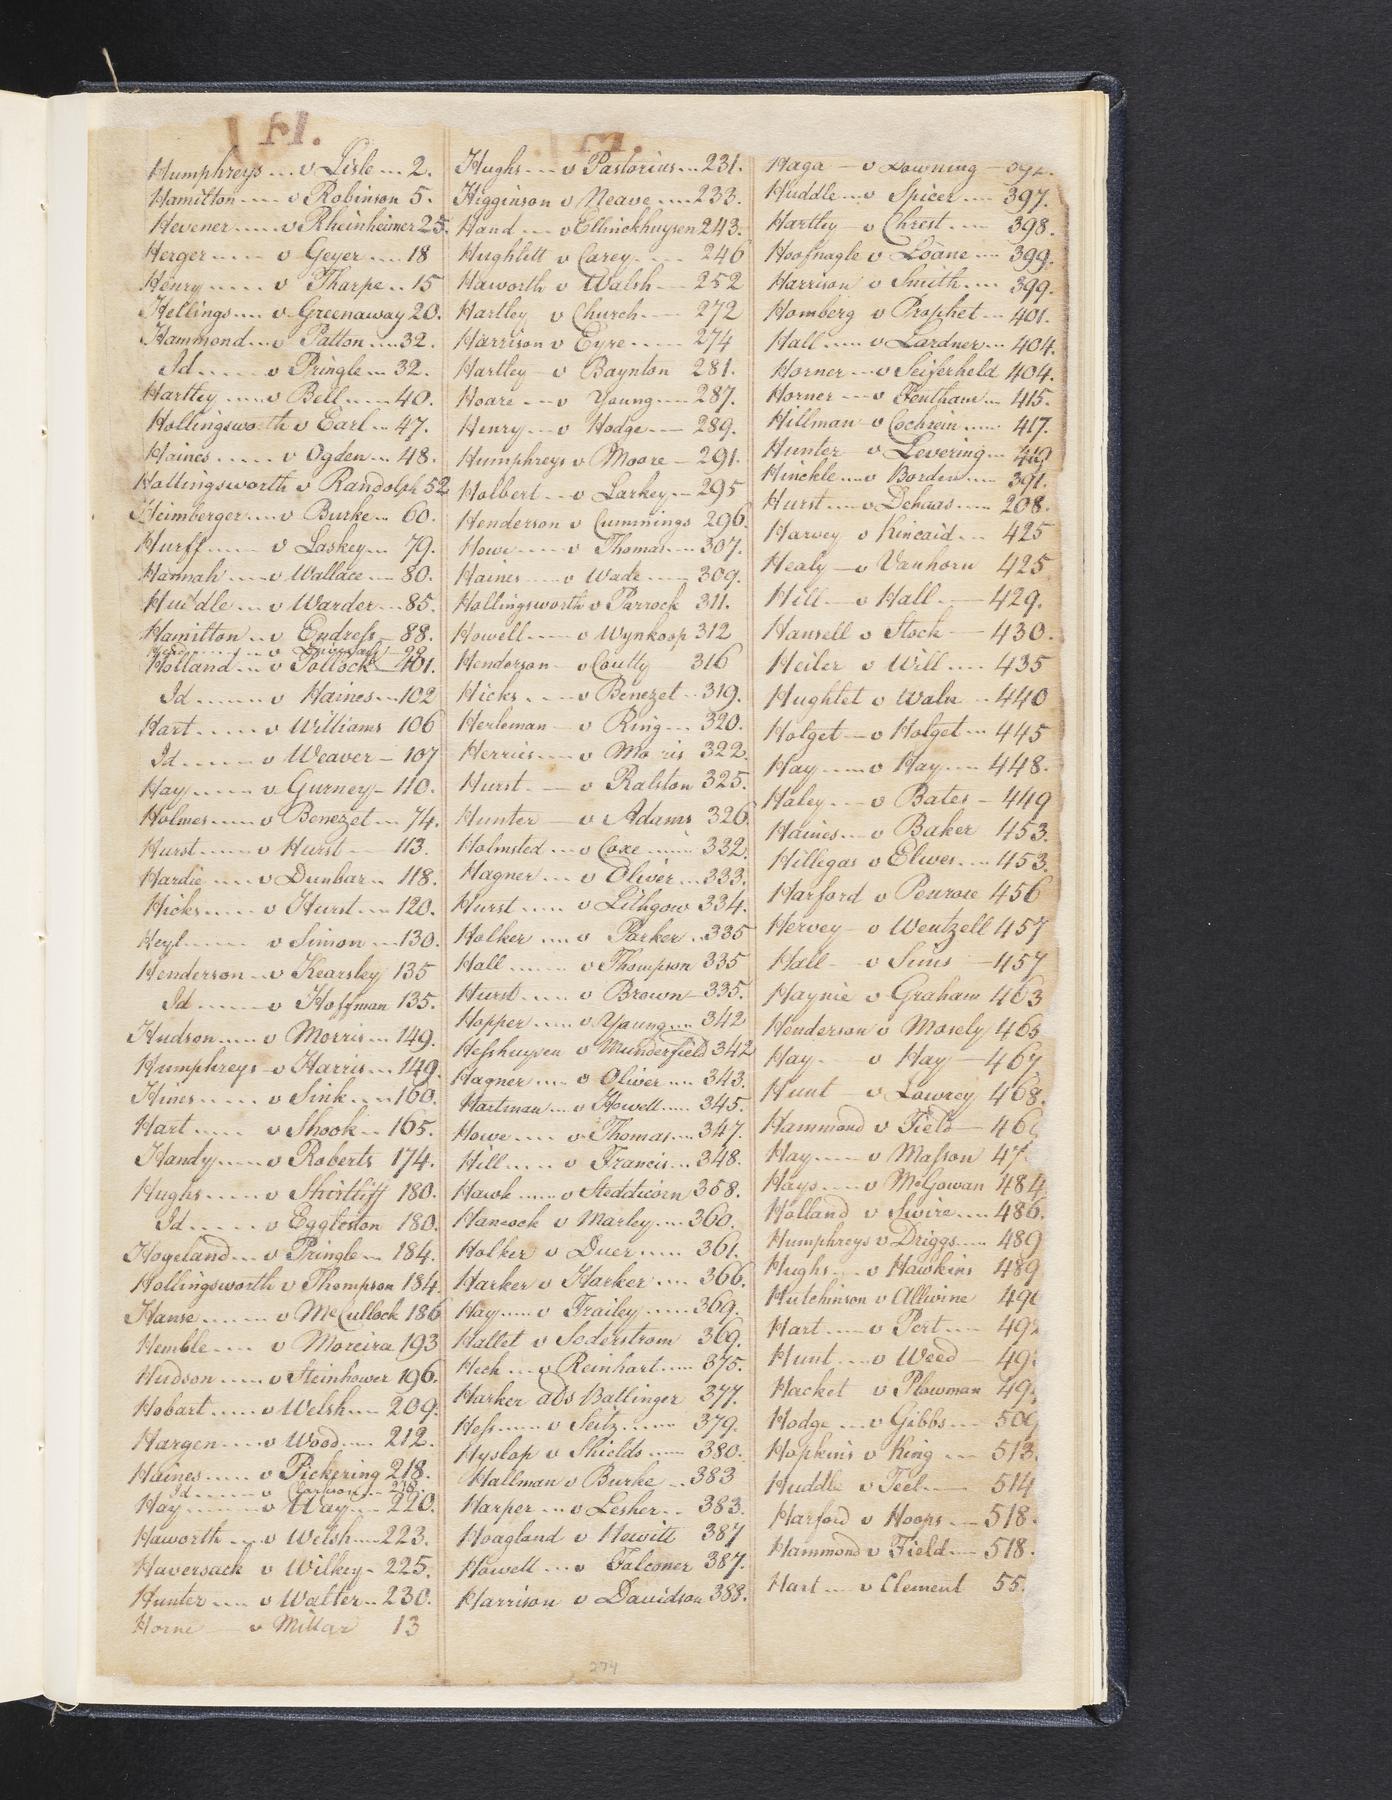 H.
Humphreys v Lisle 2.
Hamilton v Robinson 5.
Hevener v Rheinheimer 25.
Herger v Geyer 18
Henry v Tharpe 15
Hellings v Greenaway 20.
Hammond v Patton 32.
Id v Pringle 32.
Hartley v Bell 40.
Hollingsworth v Earl 47.
Haines v Ogden 48.
Hollingsworth v Randolph 52
Heimberger v Burke 60.
Hurff v Laskey 79.
Hannah v Wallace 80.
Huddle v Warder 85.
Hamilton v Endress 88.
Holland v Pollock 101.
Id v Haines 102
Hart v Williams 106
Id v Weaver 107
Hay v Gurney 110.
Holmes v Benezet 74.
Hurst v Hurst 113.
Hardie v Dunbar 118.
Hicks v Hurst 120.
Heyl v Simon 130.
Henderson v Kearsley 135
Id v Hoffman 135.
Hudson v Morris 149.
Humphreys v Harris 149.
Hines v Sink 160.
Hart v Shook 165.
Handy v Roberts 174.
Hughs v Shirtliff 180.
Id v Eggleston 180.
Hogeland v Pringle 184.
Hollingsworth v Thompson 184
Hanse v McCullock 186
Hemble v Moreira 193
Hudson v Steinhower 196.
Hobart v Welsh 209.
Hargen v Wood 212.
Haines v Pickering 218.
Id v 218.
Hay v Way 220.
Haworth v Welsh 223.
Haversack v Wilkey 225.
Hunter v Walter 230.
Horne v Millar 13
Hughs v Pastorius 231.
Higginson v Neave 233.
Hand v Ellinckhuysen 243.
Hughlett v Carey 246
Haworth v Walsh 252
Hartley v Church 272
Harrison v Eyre 274
Hartley v Baynton 281.
Hoare v Young 287.
Henry v Hodge 289.
Humphreys v Moore 291.
Holbert v Larkey 295
Henderson v Cummings 296.
Howe v Thomas 307.
Haines v Wade 309.
Hollingsworth v Parrock 311.
Howell v Wynkoop 312
Henderson v Coutty 316
Hicks v Benezet 319.
Herleman v Ring 320.
Herries v Mo ris 322.
Hurst v Ralston 325.
Hunter v Adams 326.
Holmsted v Coxe 332.
Hagner v Oliver 333.
Hurst v Lithgow 334.
Holker v Parker 335
Hall v Thompson 335
Hurst v Brown 335.
Hopper v Young 342
Hesshuysen v Munderfield 342
Hagner v Oliver 343.
Hartman v Howell 345.
Howe v Thomas 347.
Hill v Francis 348.
Hawk v Steddicorn 358.
Hancock v Marley 360.
Holker v Duer 361.
Harker v Harker 366.
Hay v Frailey 369.
Hallet v Soderstrom 369.
Heck v Reinhart 375.
Harker ads Ballinger 377.
Hess v Seitz 379.
Hyslop v Shields 380.
Hallman v Burke 383
Harper v Lesher 383.
Hoagland v Howitt 387
Howell v Falconer 387.
Harrison v Davidson 388.
Haga v Downing 392.
Huddle v Spicer 397.
Hartley v Chrest 398.
Hoofnagle v Loane 399.
Harrison v Smith 399.
Homberg v Prophet 401.
Hall v Lardner 404.
Horner v Seiferheld 404.
Horner v Fentham 415.
Hillman v Cochrein 417.
Hunter v Levering 419
Hinckle v Borden 391.
Hurst v Dehaas 208.
Harvey v Kincaid 425
Healy v Vanhorn 425
Hill v Hall 429.
Hansell v Stock 430.
Heiler v Will 435
Hughlet v Waln 440
Holget v Holget 445
Hay v Hay 448.
Haley v Bates 449
Haines v Baker 453.
Hillegas v Elwes 453.
Harford v Penrose 456
Hervey v Wentzell 457
Hall v Sims 457
Haynie v Graham 463
Henderson v Mosely 465
Hay v Hay 467
Hunt v Lowrey 468.
Hammond v Field 46
Hay v Masson 47
Hays v McGowan 484
Holland v Swire 486.
Humphreys v Driggs 489
Hughs v Hawkins 489
Hutchinson v Allwine 49
Hart v Port 492
Hunt v Weed 49
Hacket v Plowman 49
Hodge v Gibbs 509
Hopkins v King 513.
Huddle v Teel 514
Harford v Hoops 518.
Hammond v Field 518.
Hart v Clement 55.
274